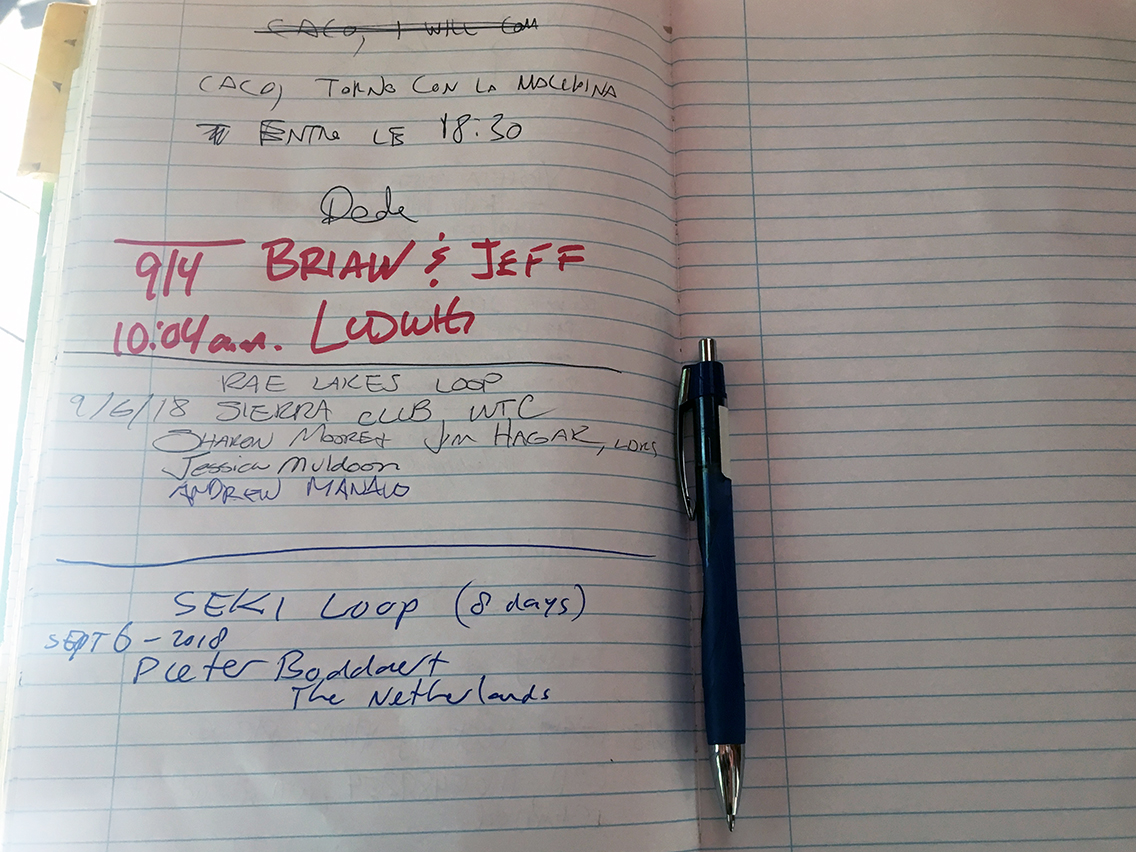 CACO, I WILL COM
CACO, TORNO CON LA MACCHINA
ENTRO LE 18:30
Dede
9/4 BRIAN & JEFF
10:04 a.m. LUDWIG
RAE LAKES LOOP
9/6/18 SIERRA CLUB WTC
SHARON MOORE + JIM HAGAR, LDRS
Jessica Muldoon
ANDREW MANALO
SEKI LOOP (8 days)
SEPT 6 - 2018
Pieter Boddaert
The Netherlands